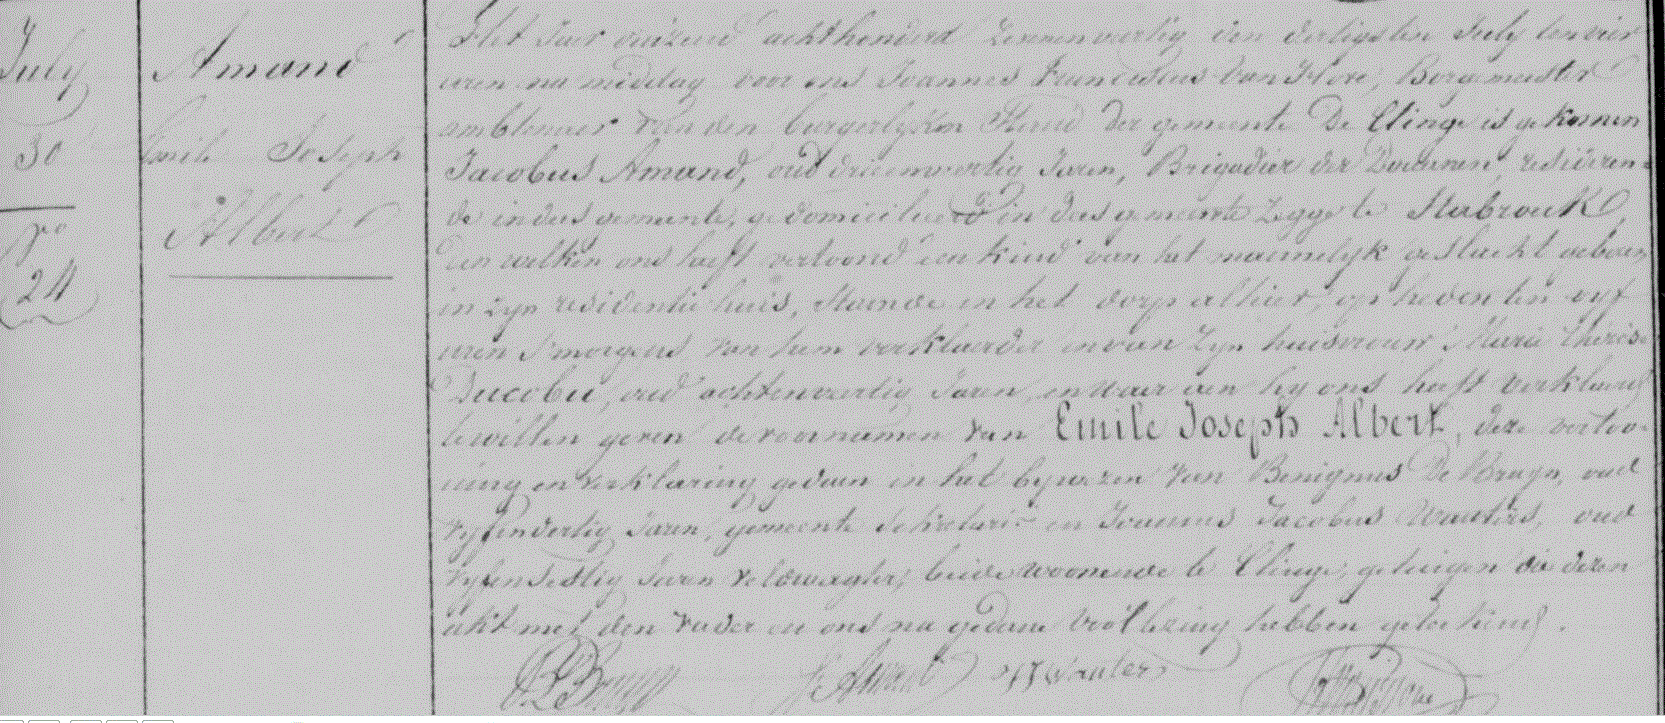 July
30
No
24
Amand
Emile Joseph
Albert
Het Jaer duizend achthonderd zevenenveertig den dertigsten July ten vier
uren na middag voor ons Joannes Franciscus Van Hove, Borgemeester
ambtenaer van den burgerlyken Stand der gemeente De Clinge is gekomen
Jacobus Amand, oud drieenveertig Jaren, Brigadier der Douanen, residenren-
de in dees gemeente, gedomicilieerd in dees gemeente Zegge te Stabrouk,
den welken ons heeft vertoond een kind van het mannelyk geslacht geboren
in zyn residentie huis, staende in het dorp alhier, op heden ten vyf
uren s'morgens van hem verklaerder en van zyn huisvrouw Marie Thérèse
Ducobu, oud achtenveertig Jaren, en waer aen hy ons heeft verklaerd
te willen geven de voornamen van Emile Joseph Albert, deze vertoo-
ning en verklaring gedaen in het bywezen van Benignus De Bruyn, oud
vyfendertig Jaren, gemeente Sekretaris en Joannes Jacobus Wauters, oud
vyfensestig Jaren veldwagter, beide woonende te Clinge, getuigen die dezen
akt met den vader en ons na gedane voorlezing hebben geteekend.
De Bruyn J Amand J J Wauters